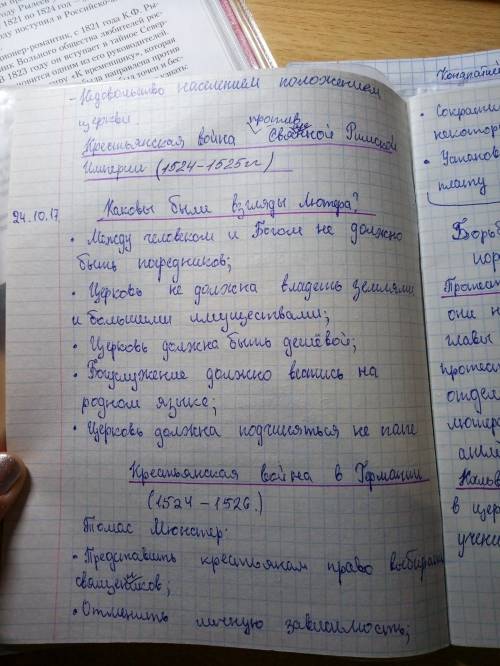 году Рылеев
1821 по 1824 год –
ду поступил в Российско-
ник-романтик, с 1821 года К.Ф. Ры-
ом Вольного общества любителей рос-
В 1823 году он вступает в тайное Север-
новится одним из его руководителей.
«К временщику», которая
была направлена против
- Недовольство населением положением
церкви
Крестьянская война против Священной Римской
Империи (1524-1525гг)
24.10.17
Каковы были взгляды Лютера?
• Между человеком и Богом не должно
быть посредников;
• Церковь не должна владеть землями
и большими имуществами;
• Церковь должна быть дешёвой;
• Богуслужение должно вестись на
родном языке;
• Церковь должна подчиняться не папе
Крестьянская война в Германии
(1524 – 1526.)
Томас Мюнстер:
• Представить крестьянам право выбирать
священиков;
• Отменить личную зависимость;
• Сократи
некотор
плату
Борьб
Протест
они н
главы
протес
отдел
лютер
англи
Кальв
в цер
учени